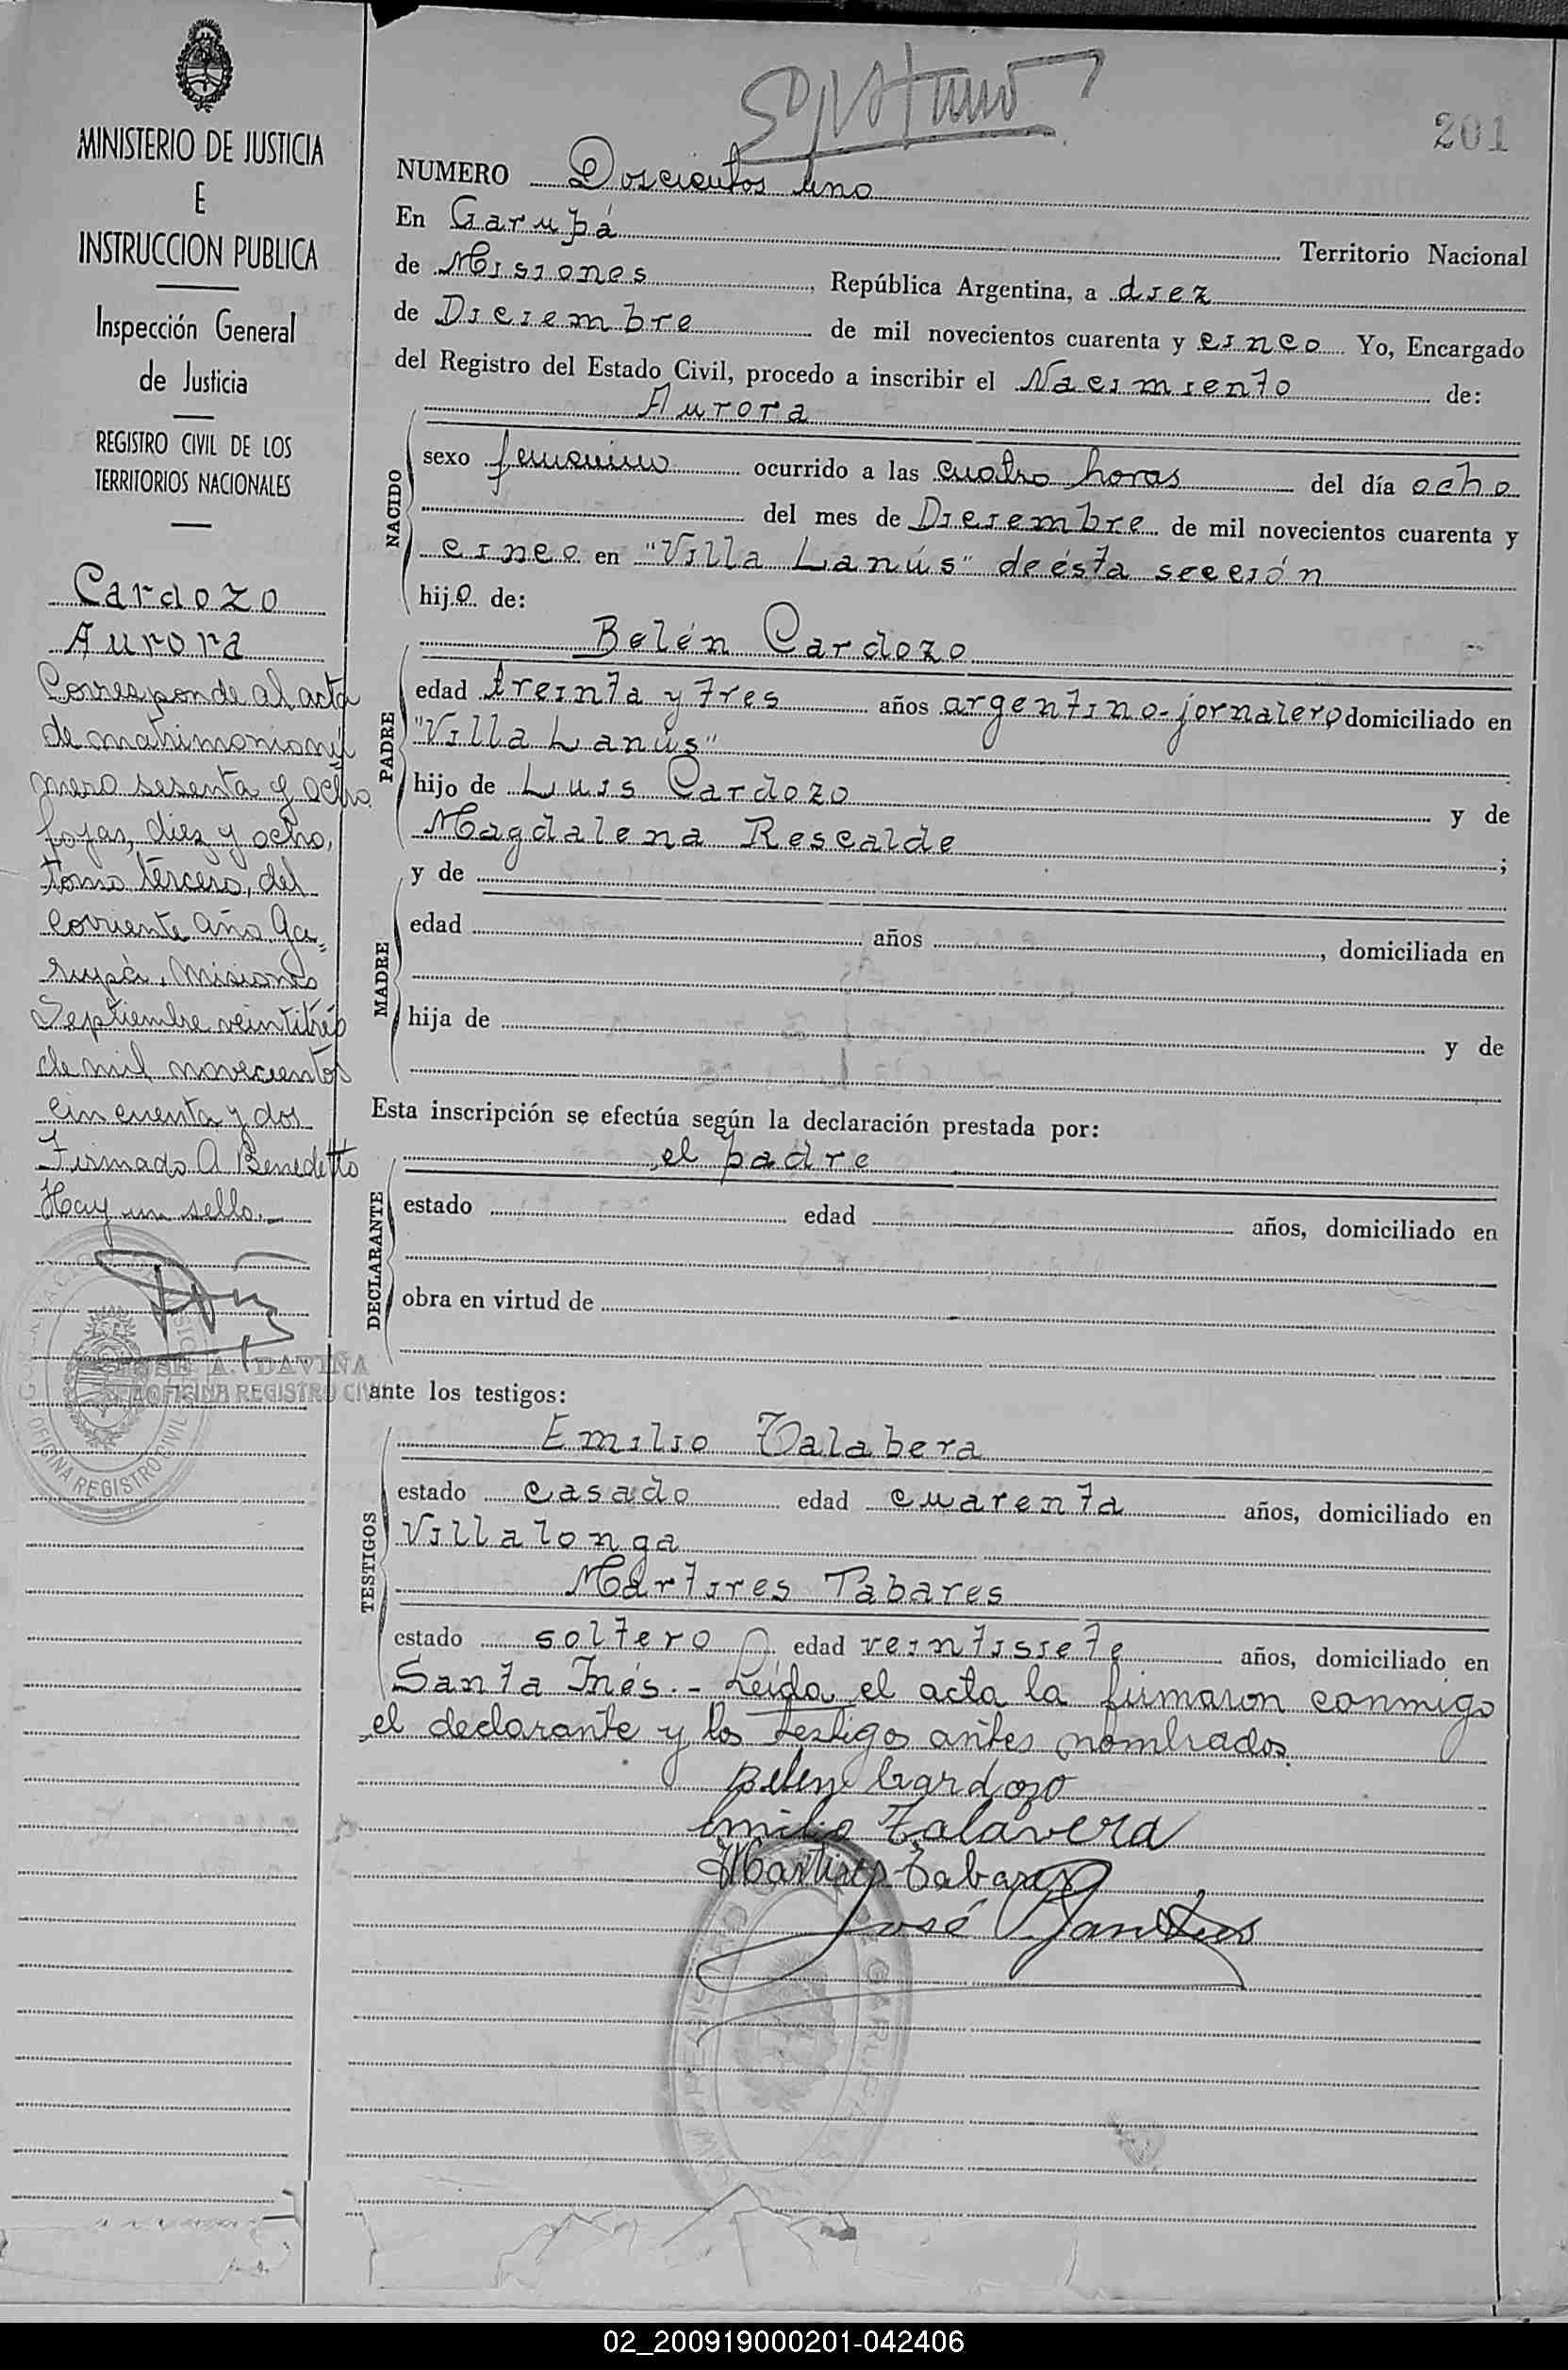 MINISTERIO DE JUSTICIA
E
INSTRUCCION PUBLICA
Inspección General
de Justicia
REGISTRO CIVIL DE LOS
TERRITORIOS NACIONALES
Cardozo
Aurora
Corresponde al acta
de matrimonio nú
mero sesenta y ocho
fojas, diez y ocho,
tomo tercero, del
corriente año. Ga=
rupá, Misiones
Septiembre veintitrés
de mil novecientos
cincuenta y dos
Firmado A Benedetto
Hay un sello.-
A. DAVIÑA
OFICINA REGISTRO CIVIL
OFICINA REGISTRO CIVIL
201
NUMERO Doscientos uno
En Garupá Territorio Nacional
de Misiones, República Argentina, a diez
de Diciembre de mil novecientos cuarenta y cinco Yo, Encargado
del Registro del Estado Civil, procedo a inscribir el Nacimiento de:
NACIDO
Aurora
sexo femenino ocurrido a las cuatro horas del día ocho
del mes de Diciembre de mil novecientos cuarenta y
cinco en "Villa Lanús" de ésta sección
hija de:
PADRE
Belén Cardozo
edad treinta y tres años argentino-jornalero, domiciliado en
"Villa Lanús"
hijo de Luis Cardozo y de
Magdalena Rescalde ;
MADRE
y de
edad años , domiciliada en
hija de y de
Esta inscripción se efectúa según la declaración prestada por:
DECLARANTE
el padre
estado edad años, domiciliado en
obra en virtud de
ante los testigos:
TESTIGOS
Emilio Talabera
estado casado edad cuarenta años, domiciliado en
Villalonga
Martires Tabares
estado soltero edad veintisiete años, domiciliado en
Santa Inés.- Leída el acta la firmaron conmigo
el declarante y los testigos antes nombrados
Belen Cardozo
Emilio Talavera
Martires Tabares
José
02_200919000201-042406